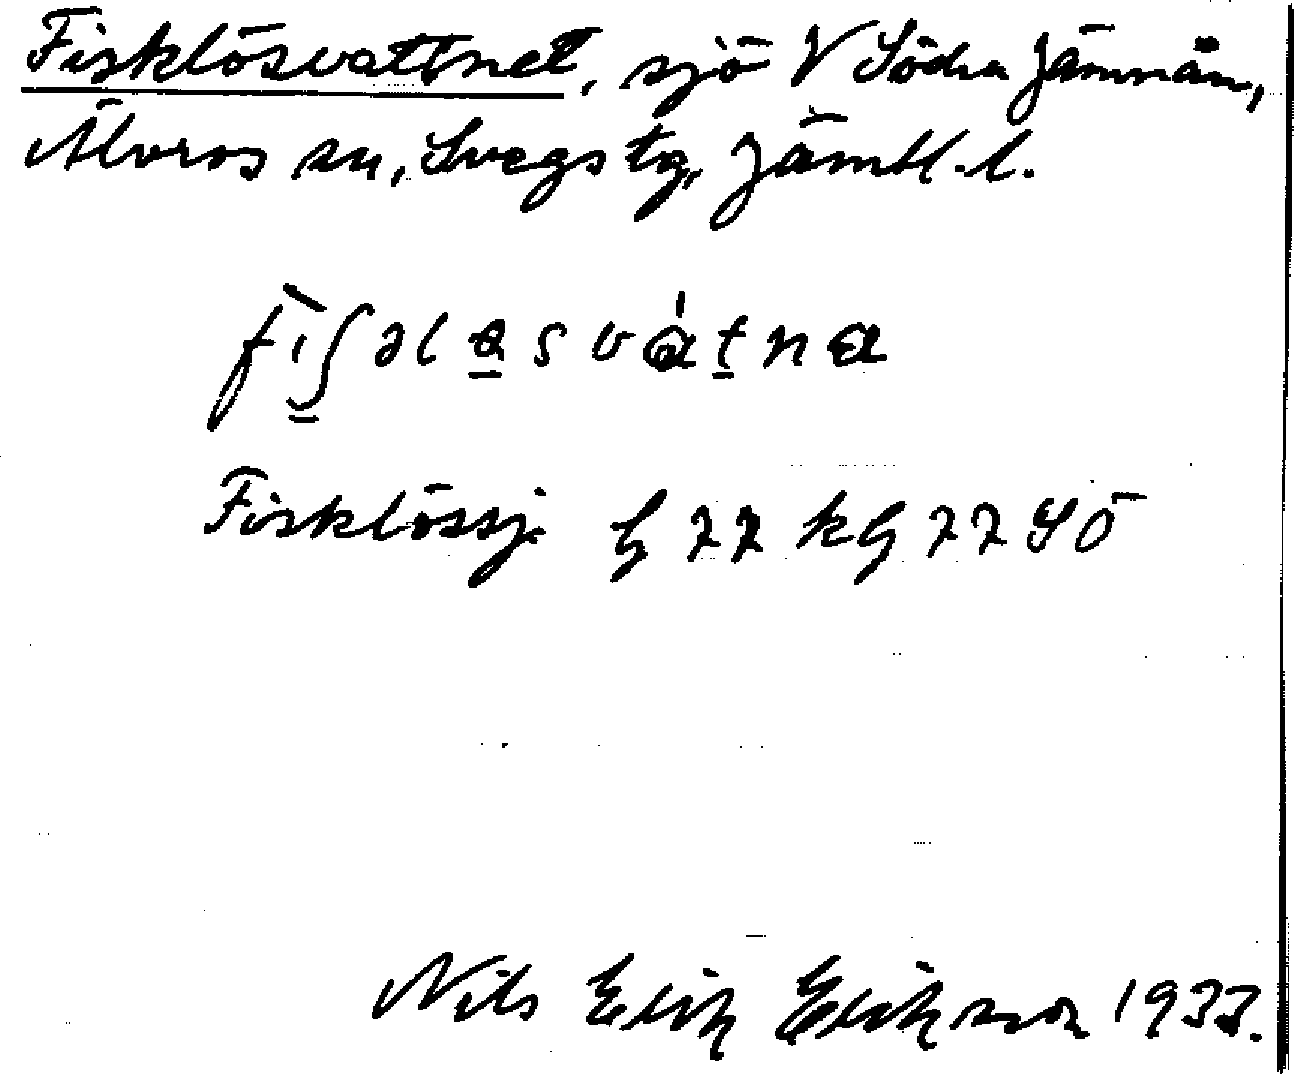 Fisklösvattnet, sjö V Södra Jämnån,
Älvros sn, Svegs tg, Jämtl. l.
Fisklössj. G 22 kG 22 SÖ
Nils Erik Eriksson 1933.